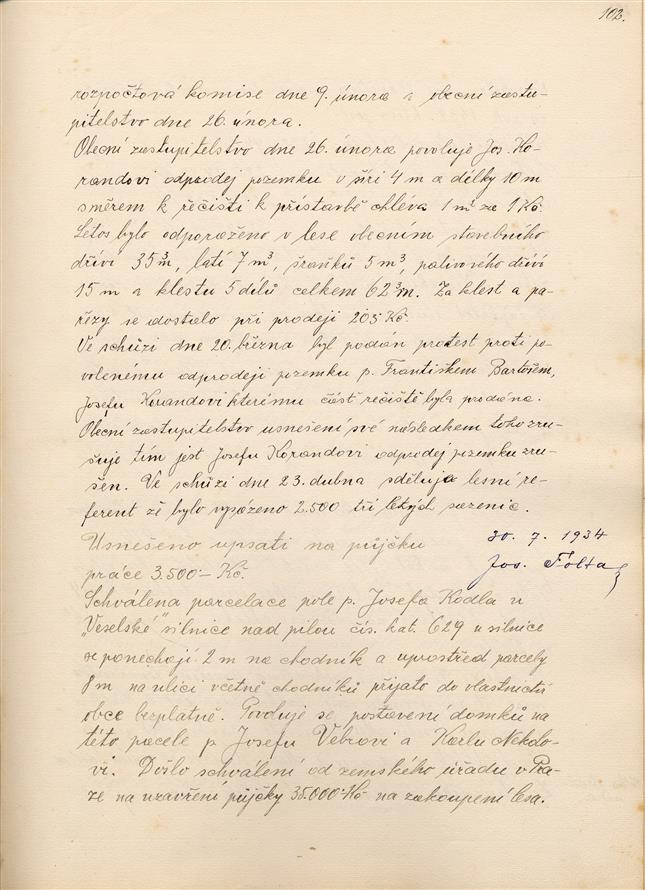 102.
rozpočtová komise dne 9. února a obecní zastu-
pitelstvo dne 26. února.
Obecní zastupitelstvo dne 26. února povoluje Jos. Ko-
randovi odprodej pozemku v šíři 4 m a délky 10 m
směrem k řečišti k přístarbě chléva 1 m² za 1 Kč.
Letos bylo odporaženo v lese obecním stavebního
dříví 35 m³, latí 7 m³, šraňků 5 m³, palivového dříví
15 m a klestu 5 dílů celkem 62 m³. Za klest a pa-
řezy se dostalo při prodeji 205 Kč.
Ve schůzi dne 20. března byl podán protest proti po-
volenému odprodeji pozemku p. Františkem Bartošem,
Josefu Korandovi kterému část řečiště byla prodána.
Obecní zastupitelstvo usnešení své následkem toho zru-
šuje tím jest Josefu Korandovi odprodej pozemku zru-
šen. Ve schůzi dne 23. dubna sděluje lesní re-
ferent že bylo vysázeno 2.500 tří letých sazenic.
Usnešeno upsati na půjčku
30. 7. 1934
práce 3.500·– Kč.
Jos. Folta
Schválena parcelace pole p. Josefa Kodla u
„Veselské" silnice nad pilou čís. kat. 629 u silnice
se ponechají 2 m na chodník a uprostřed parcely
8 m na ulici včetně chodníků přijato do vlastnictví
obce bezplatně. Povoluje se postavení domků na
této pacele p. Josefu Vebrovi a Karlu Nekolo-
vi. Došlo schválení od zemského úřadu v Pra-
ze na uzavření půjčky 35.000·Kč na zakoupení lesa.